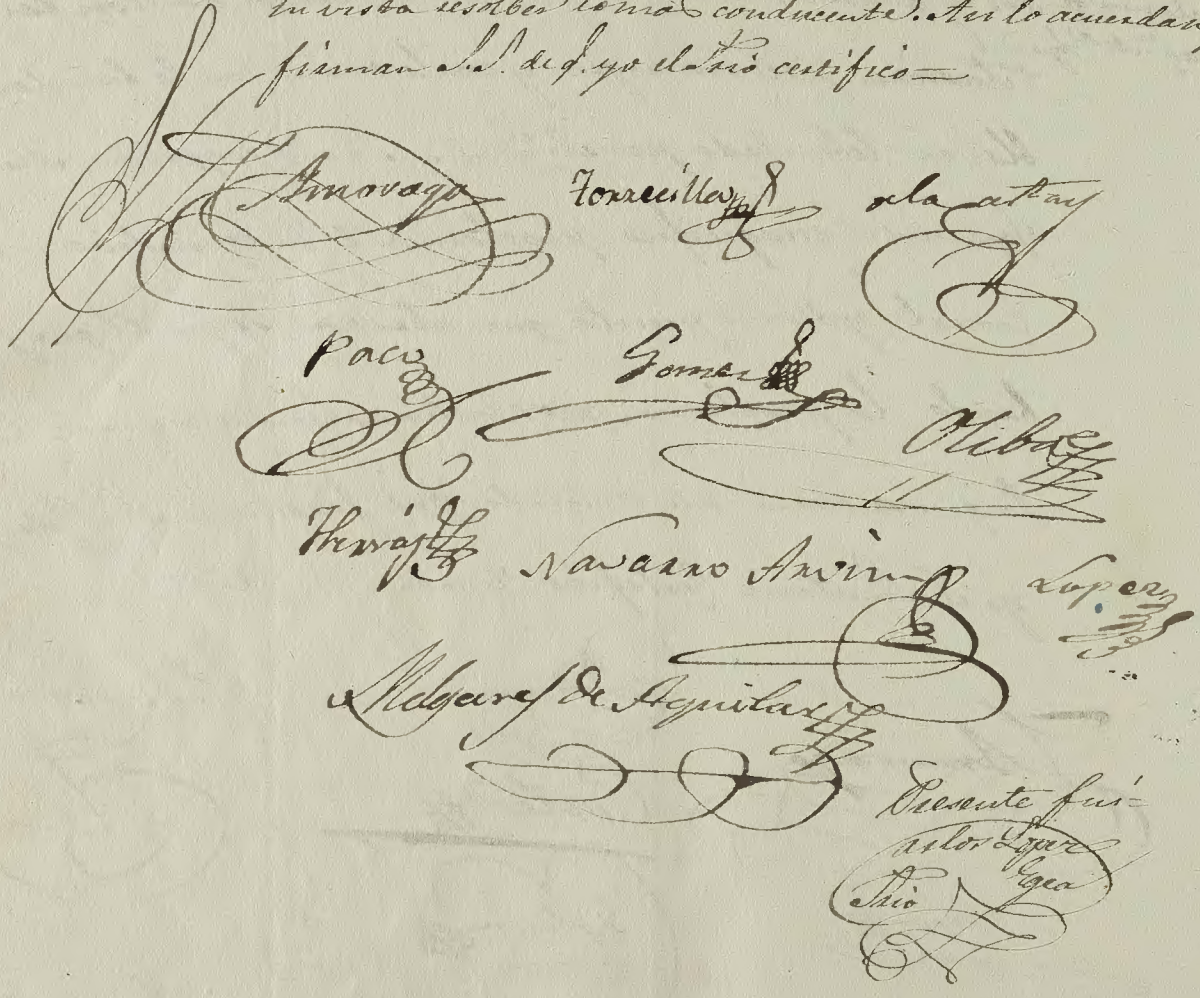 su vista resolber lo mas conducente. Asi lo acuerdan y
firman S.S. de q. yo el Srio certifico=
Torrecilla
Paco
Gomez
Oliba
Herráz
Navarro
Lopez
Melgares de Aguilar
Presente fui=
Carlos Lopez
Egea
Srio